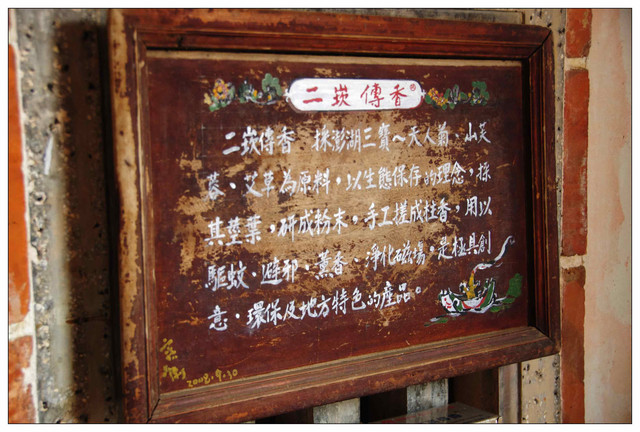 二崁傳香®
二崁傳香 採澎湖三寶~天人菊、山芙
蓉、艾草為原料,以生態保存的理念,採
其莖葉,研成粉末,手工搓成柱香,用以
驅蚊、避邪、薰香、淨化磁場,是極具創
意、環保及地方特色的產品。
2008.9.30